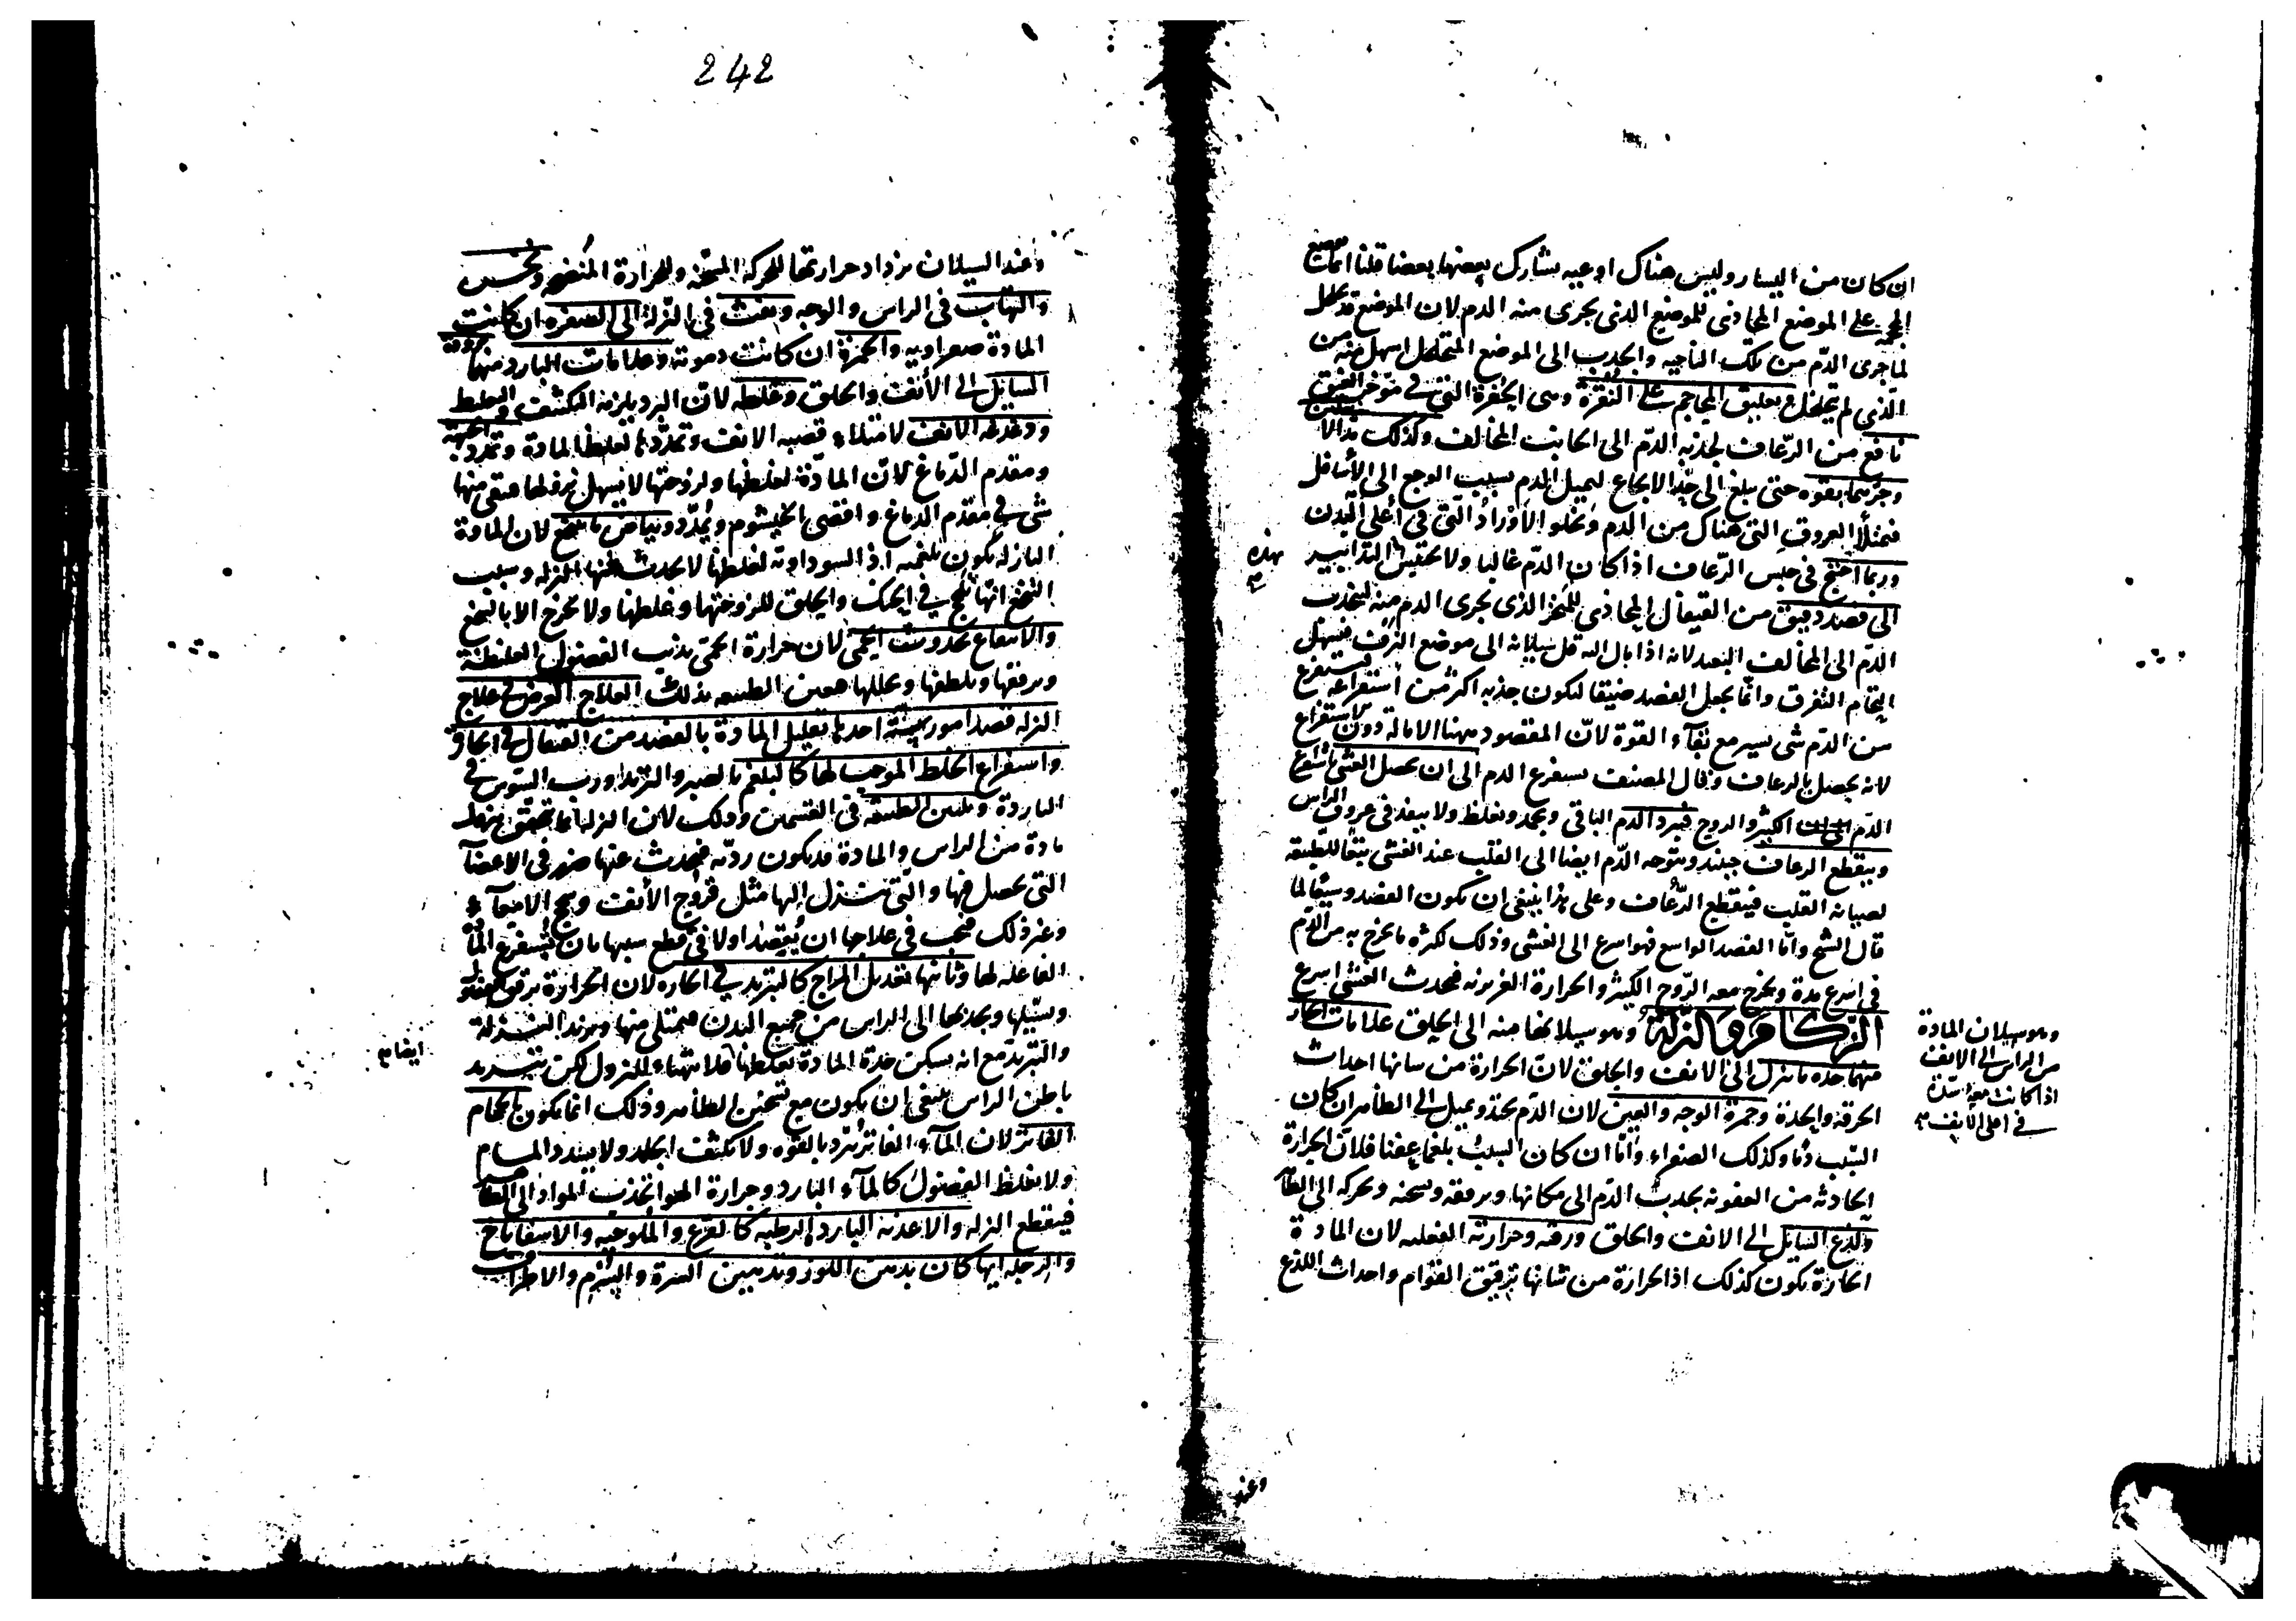 ان كان من اليسار وليس هناك اوعيه يشارك بعضها بعضا قلنا انما يوضع
المحجمه على الموضع المحاذى للموضع الذى يجرى منه الدم لان الموضع قد تخلخل
لما جرى الدم من تلك الناحيه والجذب الى الموضع المتخلخل اسهل منه من
الذى لم يتخلخل وتعليق المحاجم على النقرة وهى الحفرة التى فى مؤخر العنق
نافع من الرعاف لجذبه الدم الى الجانب المخالف وكذلك شد الا
وجرها بقوه حتى يبلغ الى حد الايجاع ليميل الدم بسبب الوجع الى الأسافل
فتمتلأ العروق التى هناك من الدم وتخلو الاوراد التى فى أعلى البدن
وربما احتيج فى حبس الرعاف اذا كان الدم غالبا ولا يحتبس بهذه التدابير
الى فصد دقيق من القيفال المحاذى للمنخر الذى يجرى الدم منه لينجذب
الدم الى المخالف البعد لانه اذا مال اليه قل سيلانه الى موضع النزف فيسهل
التحام التفرق وانما يجعل الفصد ضيقا ليكون جذبه اكثر من استفراغه فيستفرغ
من الدم شى يسير مع بقاء القوة لان المقصود ههنا الامالة دون الاستفراغ
لانه يحصل بالرعاف وقال المصنف يستفرغ الدم الى ان يحصل الغشى باستفراغ
الدم الكثير والروح فيبرد الدم الباقى ويجمد ويغلظ ولا ينفذ فى عروق الراس
وينقطع الرعاف حينئد ويتوجه الدم ايضا الى القلب عند الغشى تبعا للطبيعه
لصيانه القلب فينقطع الرعاف وعلى هذا ينبغى ان يكون الفصد وسيعا لما
قال الشيخ واما الفصد الواسع فهو اسرع الى الغشى وذلك لكثره ما يخرج به من الدم
فى اسرع مدة ويخرج معه الروح الكثير والحرارة الغريزيه فيحدث الغشى اسرع
الزكام والنزلة وهو سيلانها منه الى الحلق علامات الحار
منهما حده ما ينزل الى الانف والحلق لان الحرارة من شانها احداث
الحرقه والحدة وحمرة الوجه والعين لان الدم يحتد ويميل الى الظاهر ان كان
السبب دما وكذلك الصفراء واما ان كان السبب بلغما عفنا فلان الحرارة
الحادثه من العفونه يجذب الدم الى مكانها ويرققه ويسخنه ويحركه الى الظاهر
ولذع السايل الى الانف والحلق ورقته وحرارته الفعليه لان المادة
الحارة يكون كذلك اذ الحرارة من شانها ترقيق القوام واحداث اللذع
بهذه
وهو سيلان المادة
من الراس الى الانف
اذا كانت معه سدة
فى اعلى الانف
وعند
242
وعند السيلان يزداد حرارتها للحركه المسخنه وللحرارة المنضجه ونخس
والتهاب فى الراس والوجه ونفث فى النزلة الى الصفره ان كانت
المادة صفراويه والحمرة ان كانت دمويه وعلامات البارد منهما برودة
السايل الى الأنف والحلق وغلظه لان البرد يلزمه التكثيف والتغليظ
ودغدغه الانف لامتلاء قصبه الانف وتمددها لغلظ المادة وتمدد الجبهة
ومقدم الدماغ لان المادة لغلظها ولزوجتها لا يسهل نزولها فيبقى منها
شى فى مقدم الدماغ واقصى الخيشوم ويمدد وبياض ما يتنخع لان المادة
النازله يكون بلغميه اذ السوداويه لغلظها لا يحدث عنها النزله وسبب
التنخع انها تلحج فى الحنك والحلق للزوجتها وغلظها ولا يخرج الا بالتنخع
والانتفاع بحدوث الحمى لان حرارة الحمى يذيب الفضول الغليظة
ويرققها ويلطفها ويحللها فيعين الطبيعه بذلك العلاج الغرض فى علاج
النزله قصد امور سته احدها تقليل المادة بالفصد من القيفال فى الحارة
واستفراغ الخلط الموجب لها كالبلغم بالصبر والتربد ورب السوس فى
الباردة وتليين الطبيعه فى القسمين وذلك لان النزله انما تتحقق بنزول
مادة من الراس والمادة قد يكون رديه فيحدث عنها ضرر فى الاعضآء
التى يحصل فيها والتى تنزل اليها مثل قروح الأنف وسحج الامعآء
وغير ذلك فيجب فى علاجها ان يقصد اولا فى قطع سببها بان يستفرغ المادة
الفاعله لها وثانيها تعديل المزاج كالتبريد فى الحاره لان الحرارة ترقق
ويسيلها ويجذبها الى الراس من جميع البدن فيمتلى منها ويزيد النزلة
والتبريد مع انه يسكن حدة المادة يغلظها فلا يتهيأ للنزول لكن تبريد
باطن الراس ينبغى ان يكون مع تسخين الظاهر وذلك انما يكون بالحمام
الفاتر لان المآء الفاتر يبرد بالقوه ولا يكثف الجلد ولا يسدد المسام
ولا يغلظ الفضول كالمآء البارد وحرارة الهوا تجذب المواد الى الظاهر
فينقطع النزله والاغذيه الباردة الرطبه كالقرع والملوخيه والاسفاناخ
والرجله ايها كان بدهن اللوز وتدهين السرة والشرم والاطراف
ايضا